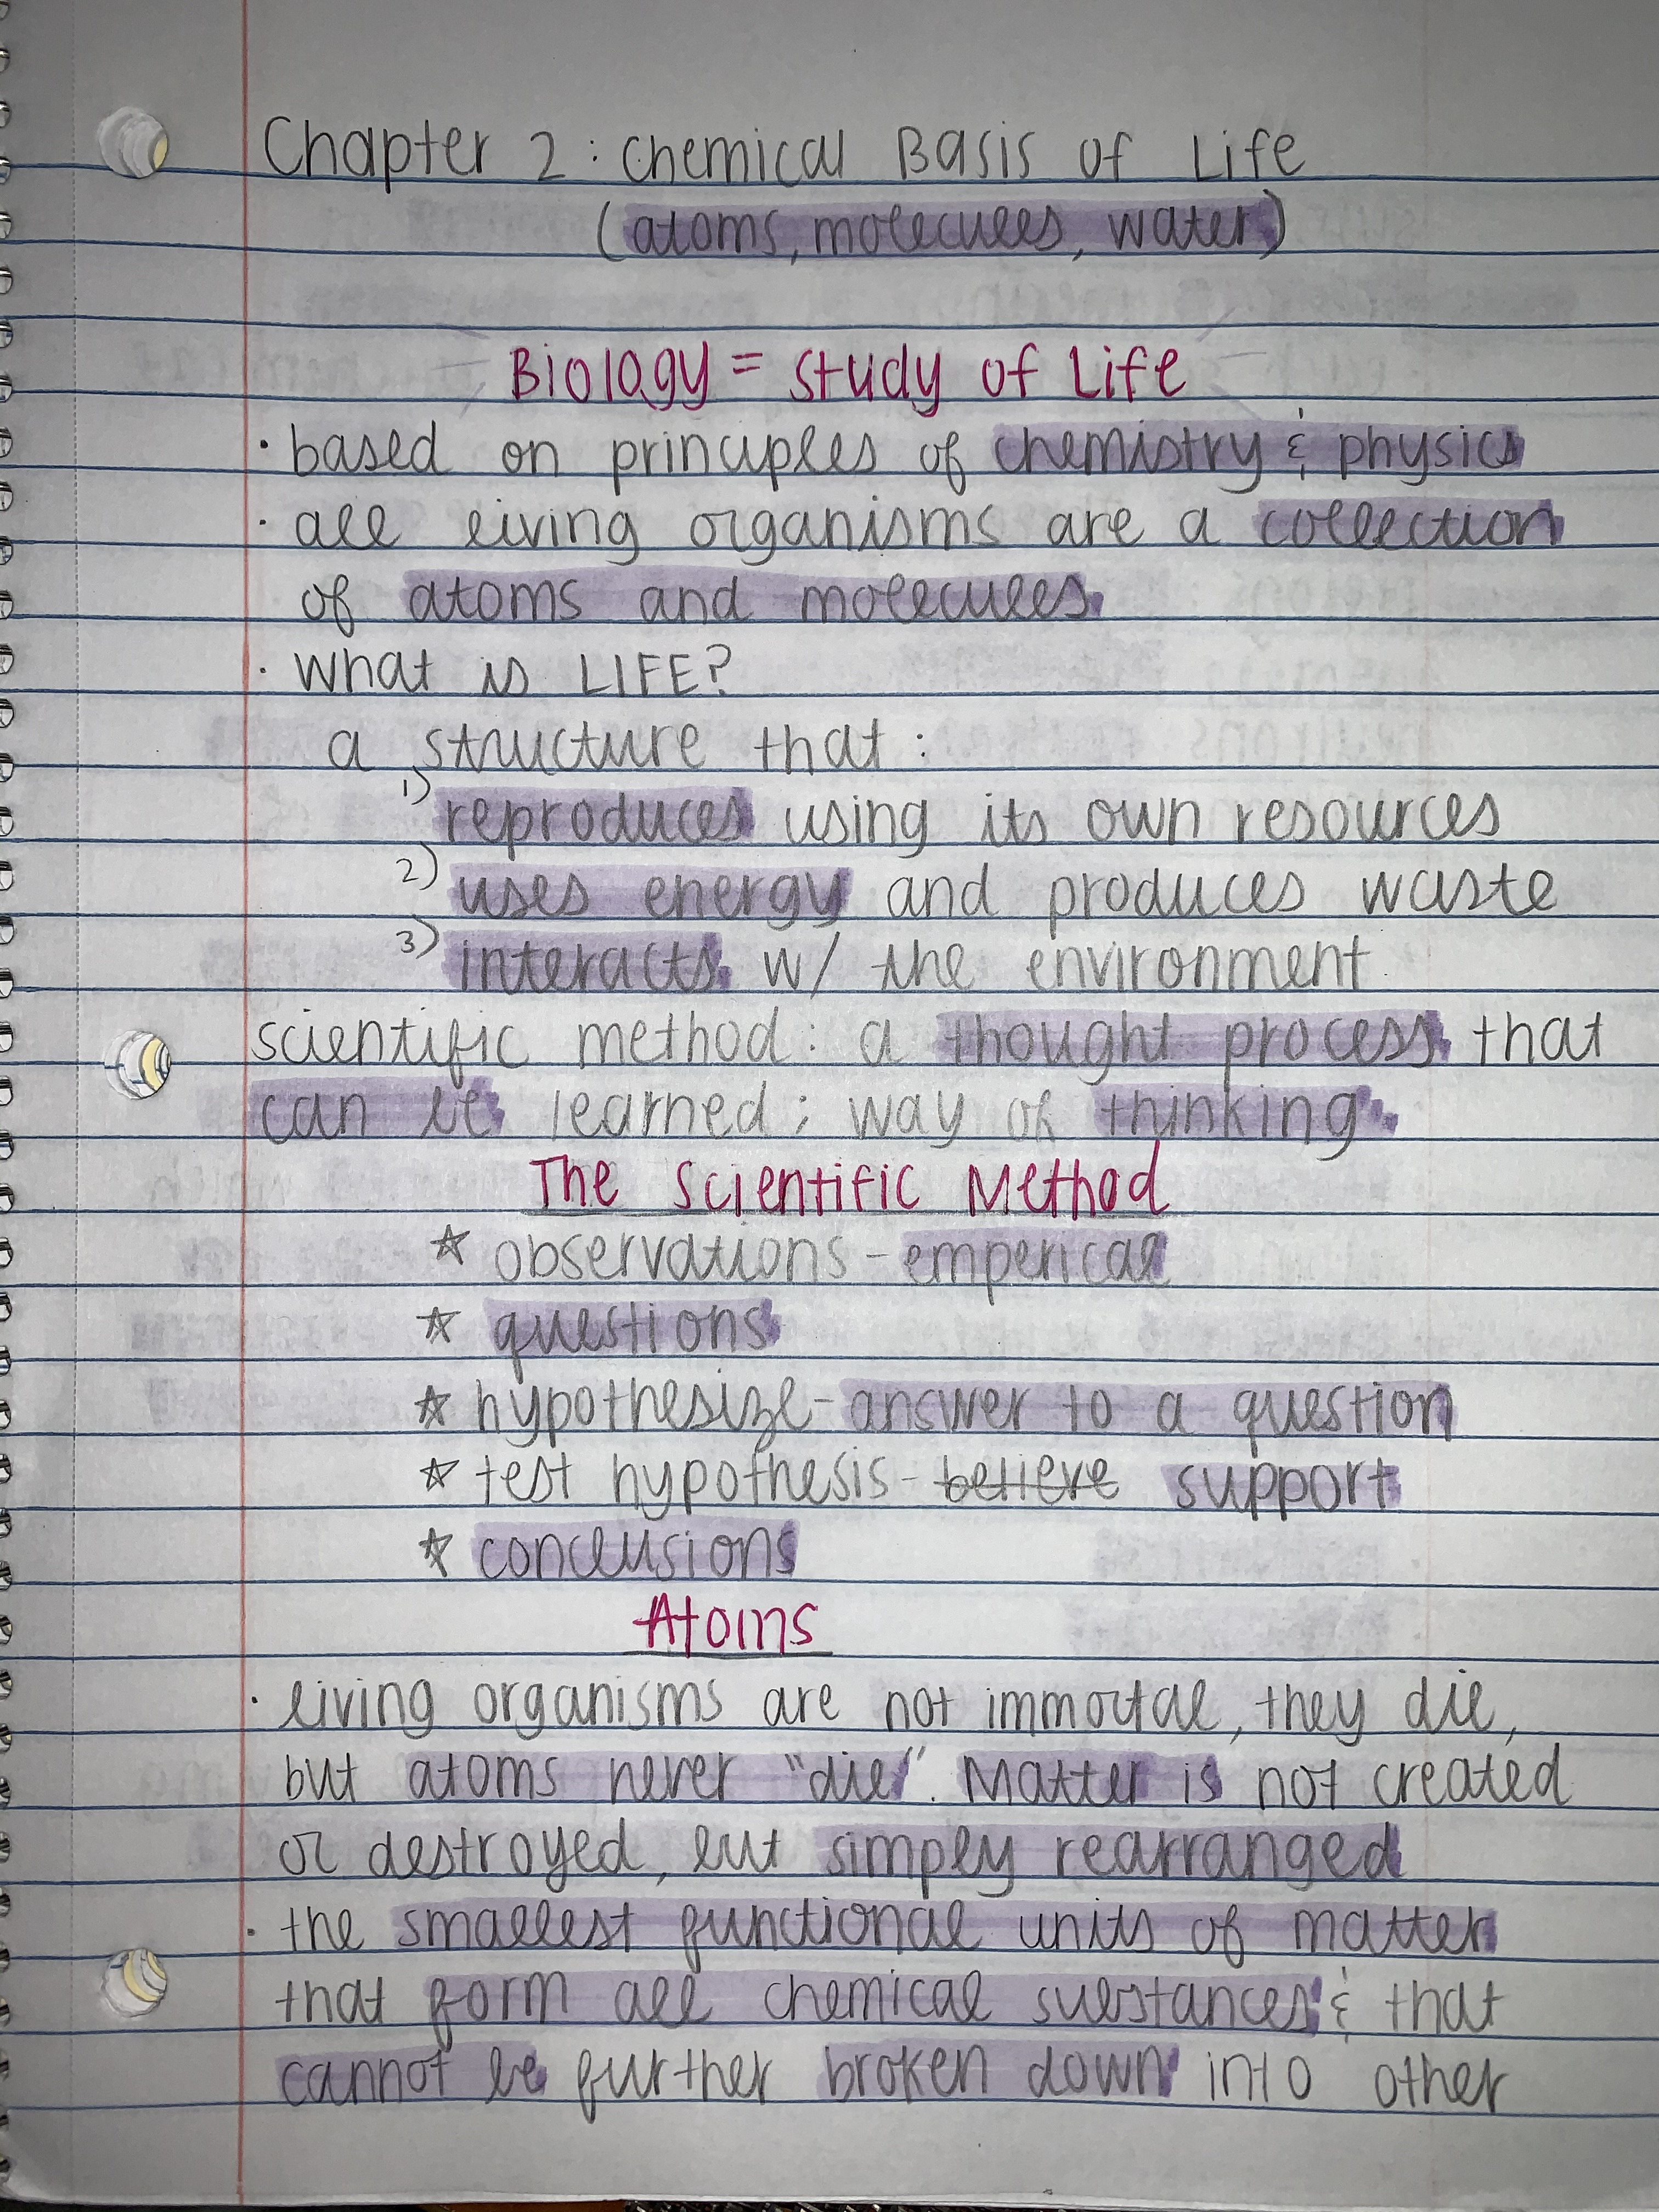 Chapter 2: Chemical Basis of Life
(atoms, molecules, water)
Biology = Study of Life
· based on principles of chemistry & physics
· all living organisms are a collection
of atoms and molecules
· what is LIFE?
a structure that:
1) reproduces using its own resources
2) uses energy and produces waste
3) interacts w/ the environment
scientific method: a thought process that
can be learned; way of thinking
The Scientific Method
☆ observations - emperical
☆ questions
☆ hypothesize - answer to a question
☆ test hypothesis - ~~believe~~ support
☆ conclusions
Atoms
· living organisms are not immortal, they die,
but atoms never "die". Matter is not created
or destroyed, but simply rearranged
· the smallest functional units of matter
that form all chemical substances & that
cannot be further broken down into other